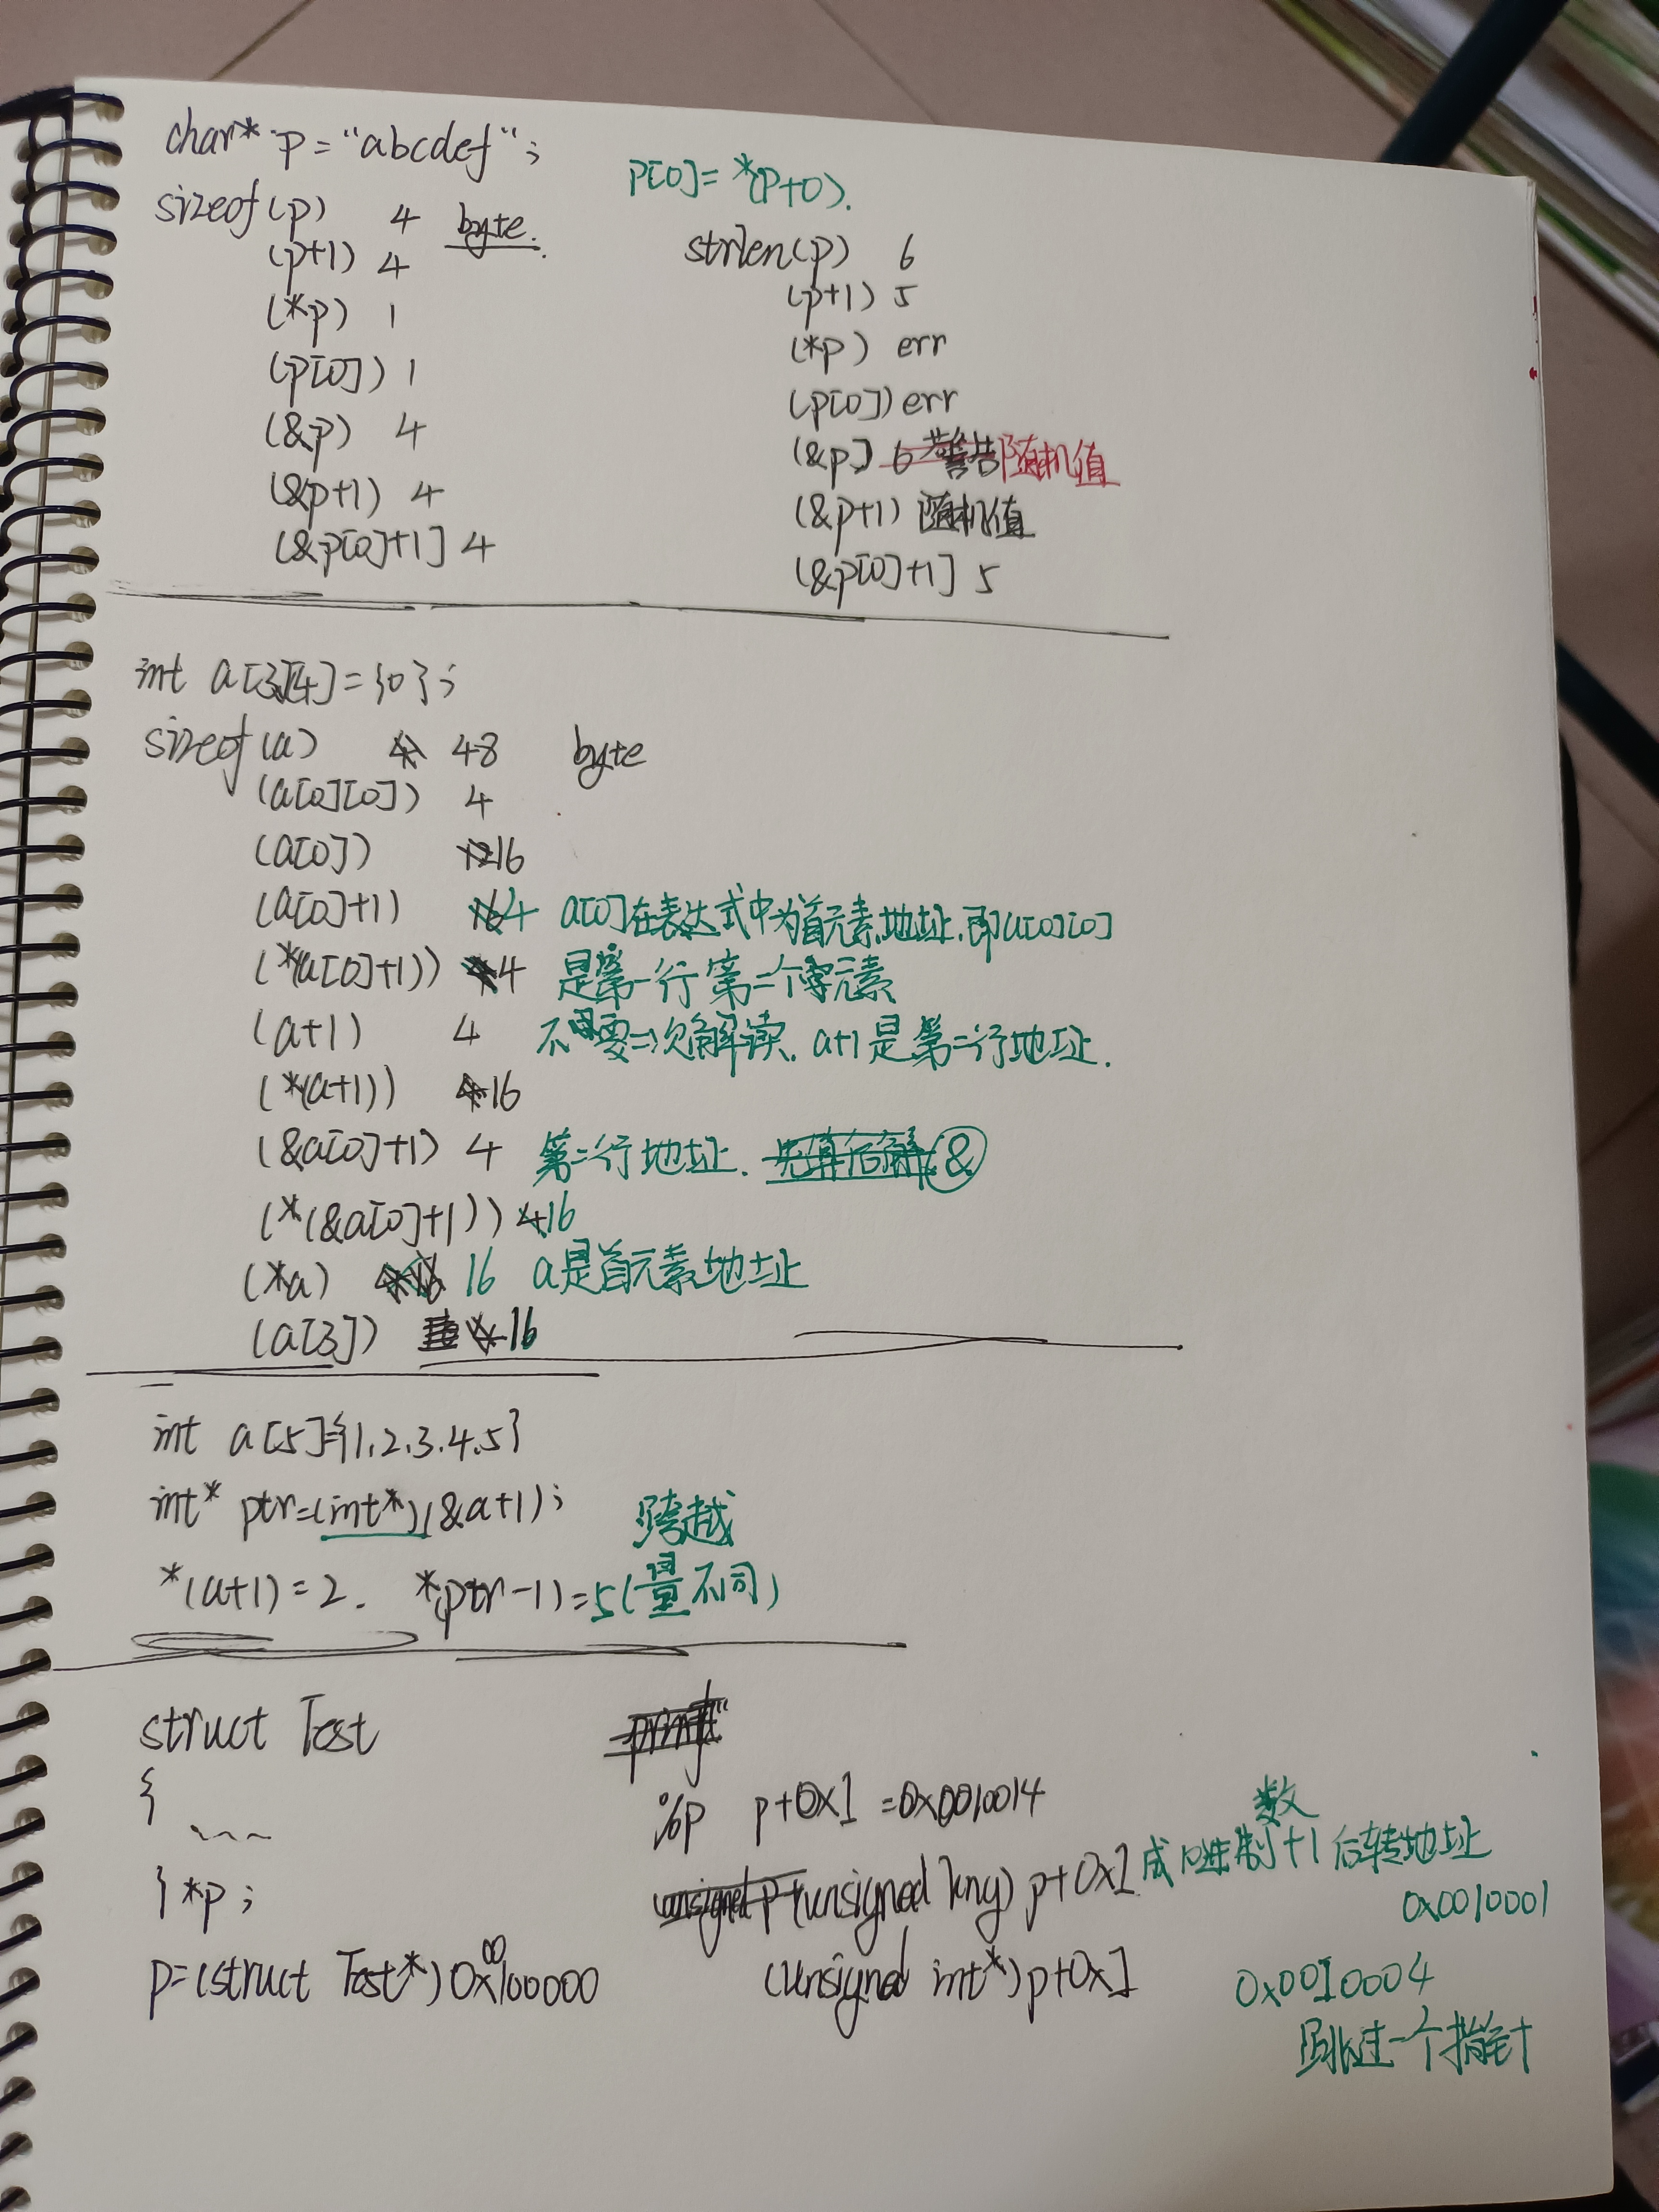 char* p = "abcdef";
p[0] = *(p+0).
sizeof(p) 4 byte.
(p+1) 4
(*p) 1
(p[0]) 1
(&p) 4
(&p+1) 4
(&p[0]+1] 4
strlen(p) 6
(p+1) 5
(*p) err
(p[0]) err
(&p] 6 警告 随机值
(&p+1) 随机值
(&p[0]+1] 5
int a[3][4] = {0};
sizeof(a) 48 byte
(a[0][0]) 4
(a[0]) 16
(a[0]+1) 4 a[0]在表达式中为首元素地址.即a[0][0]
(*(a[0]+1)) 4 是第一行第二个元素
(a+1) 4 不需要二次解读. a+1是第二行地址.
(*(a+1)) 16
(&a[0]+1) 4 第二行地址. 先算后解 &
(*(&a[0]+1)) 16
(*a) 16 a是首元素地址
(a[3]) 16
int a[5]={1.2.3.4.5}
int* ptr=(int*)(&a+1);
*(a+1)=2. *(ptr-1)=5(量不同)
跨越
struct Test
{
~~~
} *p;
p=(struct Test*)0x00100000
printf"
%p p+0x1 =0x0010014
(unsigned long) p+0x1 成16进制数+1后转地址
0x0010001
(unsigned int*)p+0x1 0x0010004
跳过一个指针